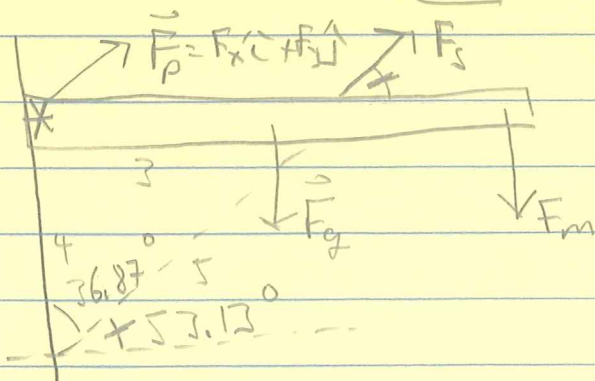 F⃗p = Fx î + Fy ĵ
Fs
3
F⃗g
Fm
4
36.87°
5
53.13°